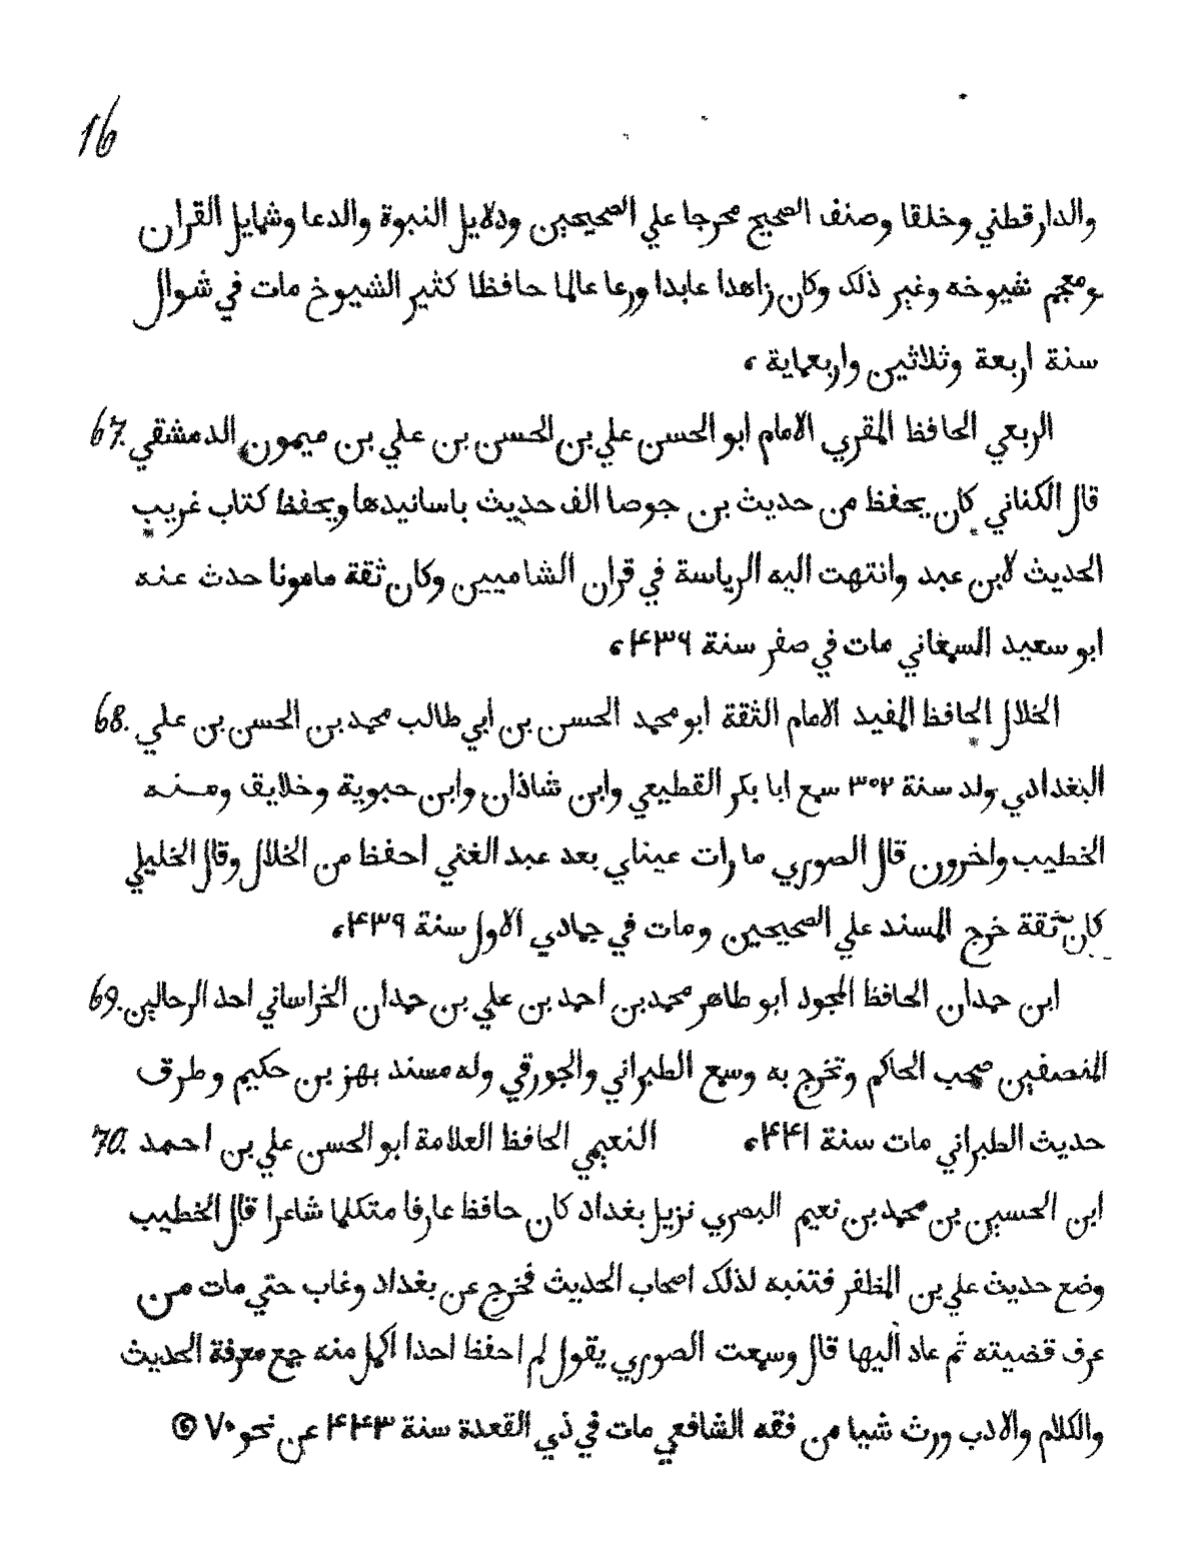 16
والدارقطني وخلقا وصنف الصحيح محرجا علي الصحيحين ودلايل النبوة والدعا وشمايل القران
ومعجم شيوخه وغير ذلك وكان زاهدا عابدا ورعا عالما حافظا كثير الشيوخ مات في شوال
سنة اربعة وثلاثين واربعماية ،
67. الربعي الحافظ المقري الامام ابو الحسن علي بن الحسن بن علي بن ميمون الدمشقي
قال الكناني كان يحفظ من حديث بن جوصا الف حديث باسانيدها ويحفظ كتاب غريب
الحديث لابن عبد وانتهت اليه الرياسة في قران الشاميين وكان ثقة مامونا حدث عنه
ابو سعيد السمعاني مات في صفر سنة ۴۳۶ ،
68. الخلال الحافظ المفيد الامام الثقة ابو محمد الحسن بن ابي طالب محمد بن الحسن بن علي
البغدادي ولد سنة ۳۵۲ سمع ابا بكر القطيعي وابن شاذان وابن حبوية وخلايق ومنه
الخطيب واخرون قال الصوري ما رات عيناي بعد عبد الغني احفظ من الخلال وقال الخليلي
كان ثقة خرج المسند علي الصحيحين ومات في جمادي الاول سنة ۴۳۹ ،
69. ابن حمدان الحافظ المجود ابو طاهر محمد بن احمد بن علي بن حمدان الخراساني احد الرحالين
المنصفين صحب الحاكم وتخرج به وسمع الطبراني والجورقي وله مسند بهز بن حكيم وطرق
حديث الطبراني مات سنة ۴۴۱ ، 70. النعيمي الحافظ العلامة ابو الحسن علي بن احمد
ابن الحسين بن محمد بن نعيم البصري نزيل بغداد كان حافظ عارفا متكلما شاعرا قال الخطيب
وضع حديث علي بن المظفر فتنبه لذلك اصحاب الحديث فخرج عن بغداد وغاب حتي مات من
عرف قضيته ثم عاد اليها قال وسمعت الصوري يقول لم احفظ احدا اكمل منه جمع معرفة الحديث
والكلام والادب ورث شيا من فقه الشافعي مات في ذي القعدة سنة ۴۴۳ عن نحو ۷۰